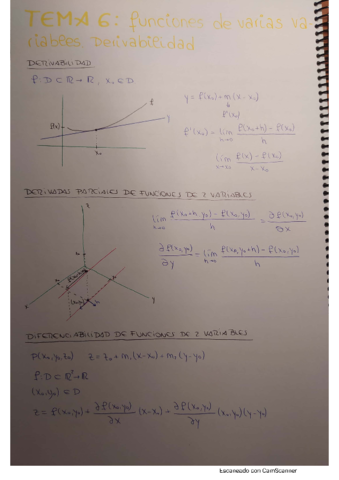 TEMA 6: funciones de varias va-
riables Derivabilidad
DERIVABILIDAD
f: D ⊂ ℝ → ℝ, x₀ ∈ D
y = f(x₀) + m (x - x₀)
f'(x₀)
f'(x₀) = lim h→0 f(x₀+h) - f(x₀) / h
lim x→x₀ f(x) - f(x₀) / x - x₀
f(x₀)
f
x₀
DERIVADAS PARCIALES DE FUNCIONES DE 2 VARIABLES
lim h→0 f(x₀+h, y₀) - f(x₀, y₀) / h = ∂f(x₀, y₀) / ∂x
∂f(x₀, y₀) / ∂y = lim h→0 f(x₀, y₀+h) - f(x₀, y₀) / h
z
x
y
DIFERENCIABILIDAD DE FUNCIONES DE 2 VARIABLES
P(x₀, y₀, z₀) z = z₀ + m₁ (x - x₀) + m₂ (y - y₀)
f: D ⊂ ℝ² → ℝ
(x₀, y₀) ∈ D
z = f(x₀, y₀) + ∂f(x₀, y₀) / ∂x (x - x₀) + ∂f(x₀, y₀) / ∂y (x₀, y₀)(y - y₀)
Escaneado con CamScanner